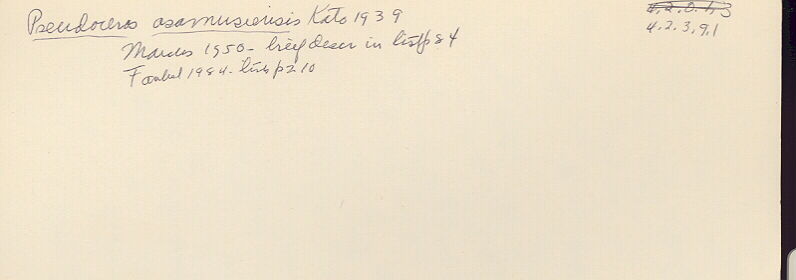 Pseudoceros asamusiensis Kato 1939
4.2.3.9.1
Marcus 1950 - brief descr in list p 84
Faubel 1984 - lists p 210